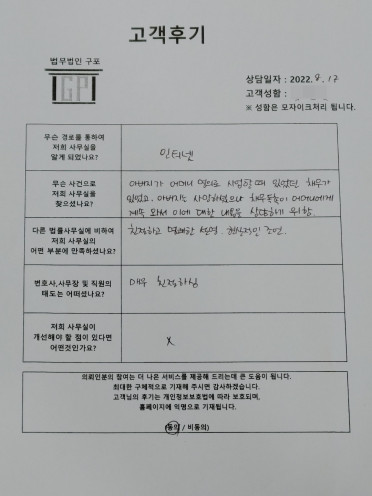 고객후기
법무법인 구포
GP
상담일자 : 2022. 8. 17
고객성함 :
※ 성함은 모자이크처리 됩니다.
무슨 경로를 통하여
저희 사무실을
알게 되었나요?
인터넷
무슨 사건으로
저희 사무실을
찾으셨나요?
아버지가 어머니 명의로 사업할때 있었던 채무가
있었고. 아버지는 사망하였으나 채무독촉이 어머니에게
계속 와서 이에 대한 내용을 상담하기 위함.
다른 법률사무실에 비하여
저희 사무실의
어떤 부분에 만족하셨나요?
친절하고 명쾌한 설명. 현실적인 조언.
변호사,사무장 및 직원의
태도는 어떠셨나요?
매우 친절하심
저희 사무실이
개선해야 할 점이 있다면
어떤것인가요?
X
의뢰인분의 참여는 더 나은 서비스를 제공해 드리는데 큰 도움이 됩니다.
최대한 구체적으로 기재해 주시면 감사하겠습니다.
고객님의 후기는 개인정보보호법에 따라 보호되며,
홈페이지에 익명으로 기재됩니다.
(동의 / 비동의)